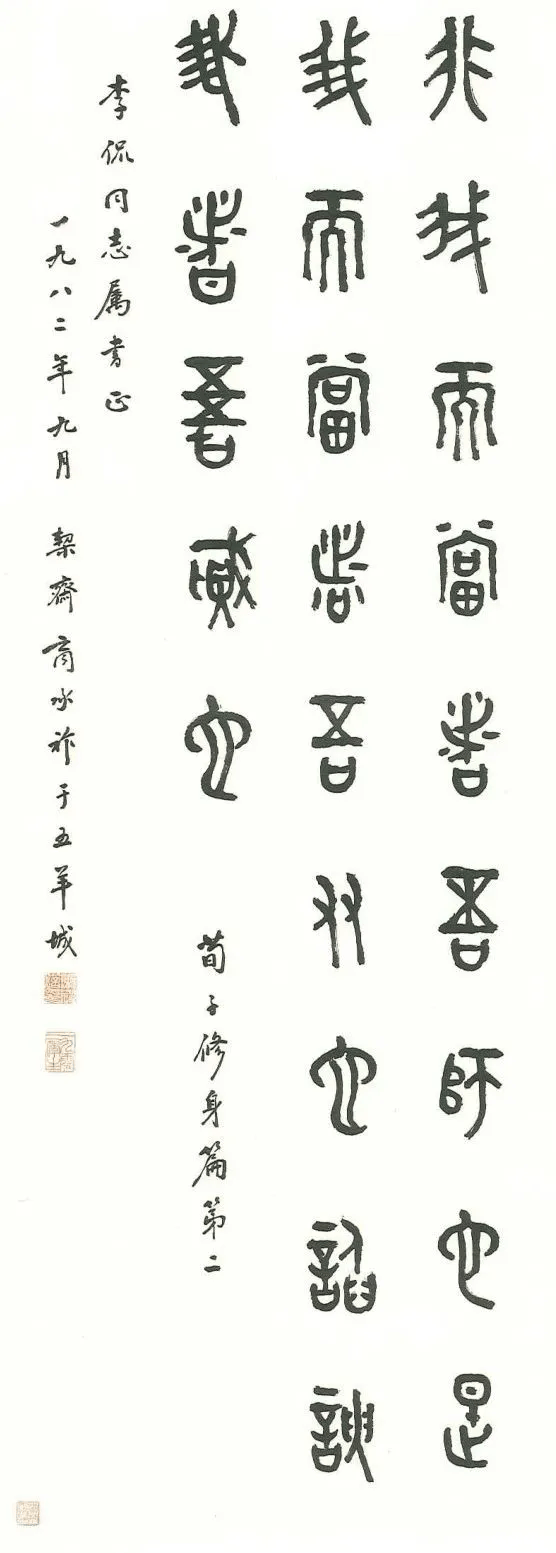 非我而當者吾師也是
我而當者吾友也諂諛
我者吾賊也 荀子修身篇第二
李侃同志属書正
一九八二年九月 栔齋商承祚于五羊城